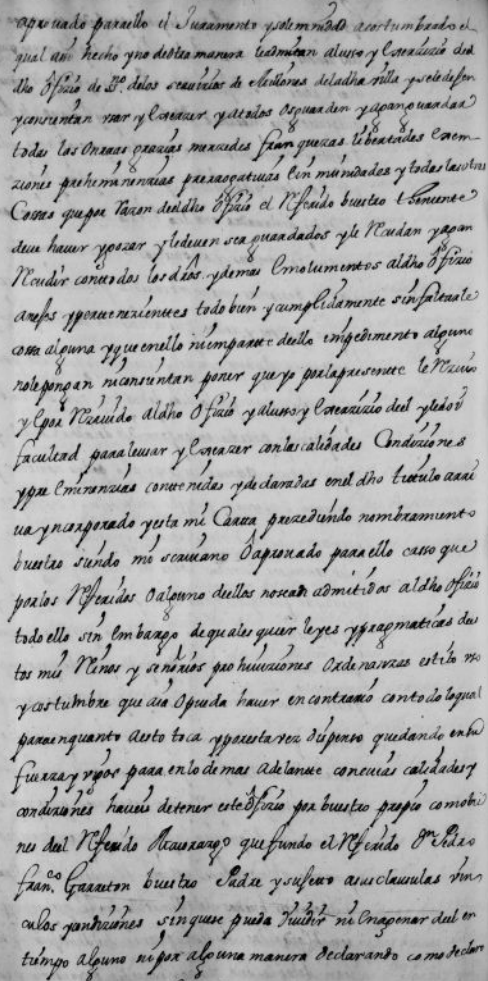 aprovado para ello el Juramento y solemnidad acostumbrado el
qual assi hecho y no de otra manera le admitan al usso y Exerzizio del
dho Ofizio de SSno. de los servizios de Millones de la dha villa y se le dejen
y consientan usar y Exerzer y a todos os guarden y agan guardar
todas las Onrras grazias merzedes franquezas libertades Exem-
ziones preheminenzias prerrogativas Ynmunidades y todas las otras
Cossas que por razon del dho Ofizio el Referido buestro theniente
deve haver y gozar y le deven ser guardados y le Recudan y agan
Recudir con todos los dros. y demas Emolumentos al dho Ofizio
anejos y pertenezientes todo bien y cumplidamente sin faltarle
cossa alguna y que en ello ni en parte de ello impedimento alguno
no le pongan ni consientan poner que yo por la presente le Rezivo
y E por Rezivido al dho Ofizio y al usso y Exerzizio de el y le doi
facultad para le usar y Exerzer con las calidades Condiziones
y preeminenzias contenidas y declaradas en el dho titulo arri
va yncorporado y esta mi Carta prezediendo nombramiento
buestro siendo mi scrivano O aprovado para ello casso que
por los Referidos O alguno de ellos no sean admitidos al dho Ofizio
todo ello sin Embargo de quales quier leyes y pragmaticas des
tos mis Reinos y señorios prohiviziones Ordenanzas estilo uso
y costumbre que aia O pueda haver en contrario con todo lo qual
para en quanto a esto toca y por esta vez dispenso quedando en su
fuerza y vigor para en lo de mas adelante con cuias calidades y
condiziones haveis de tener este Ofizio por buestro propio como bi
nes del Referido Mayorazgo que fundo el Referido Dn. Pedro
Franco. Garreton buestro Padre y sujetto a sus clausulas vin
culos y condiziones sin que se pueda dividir ni Enagenar del en
tiempo alguno ni por alguna manera declarando como declaro